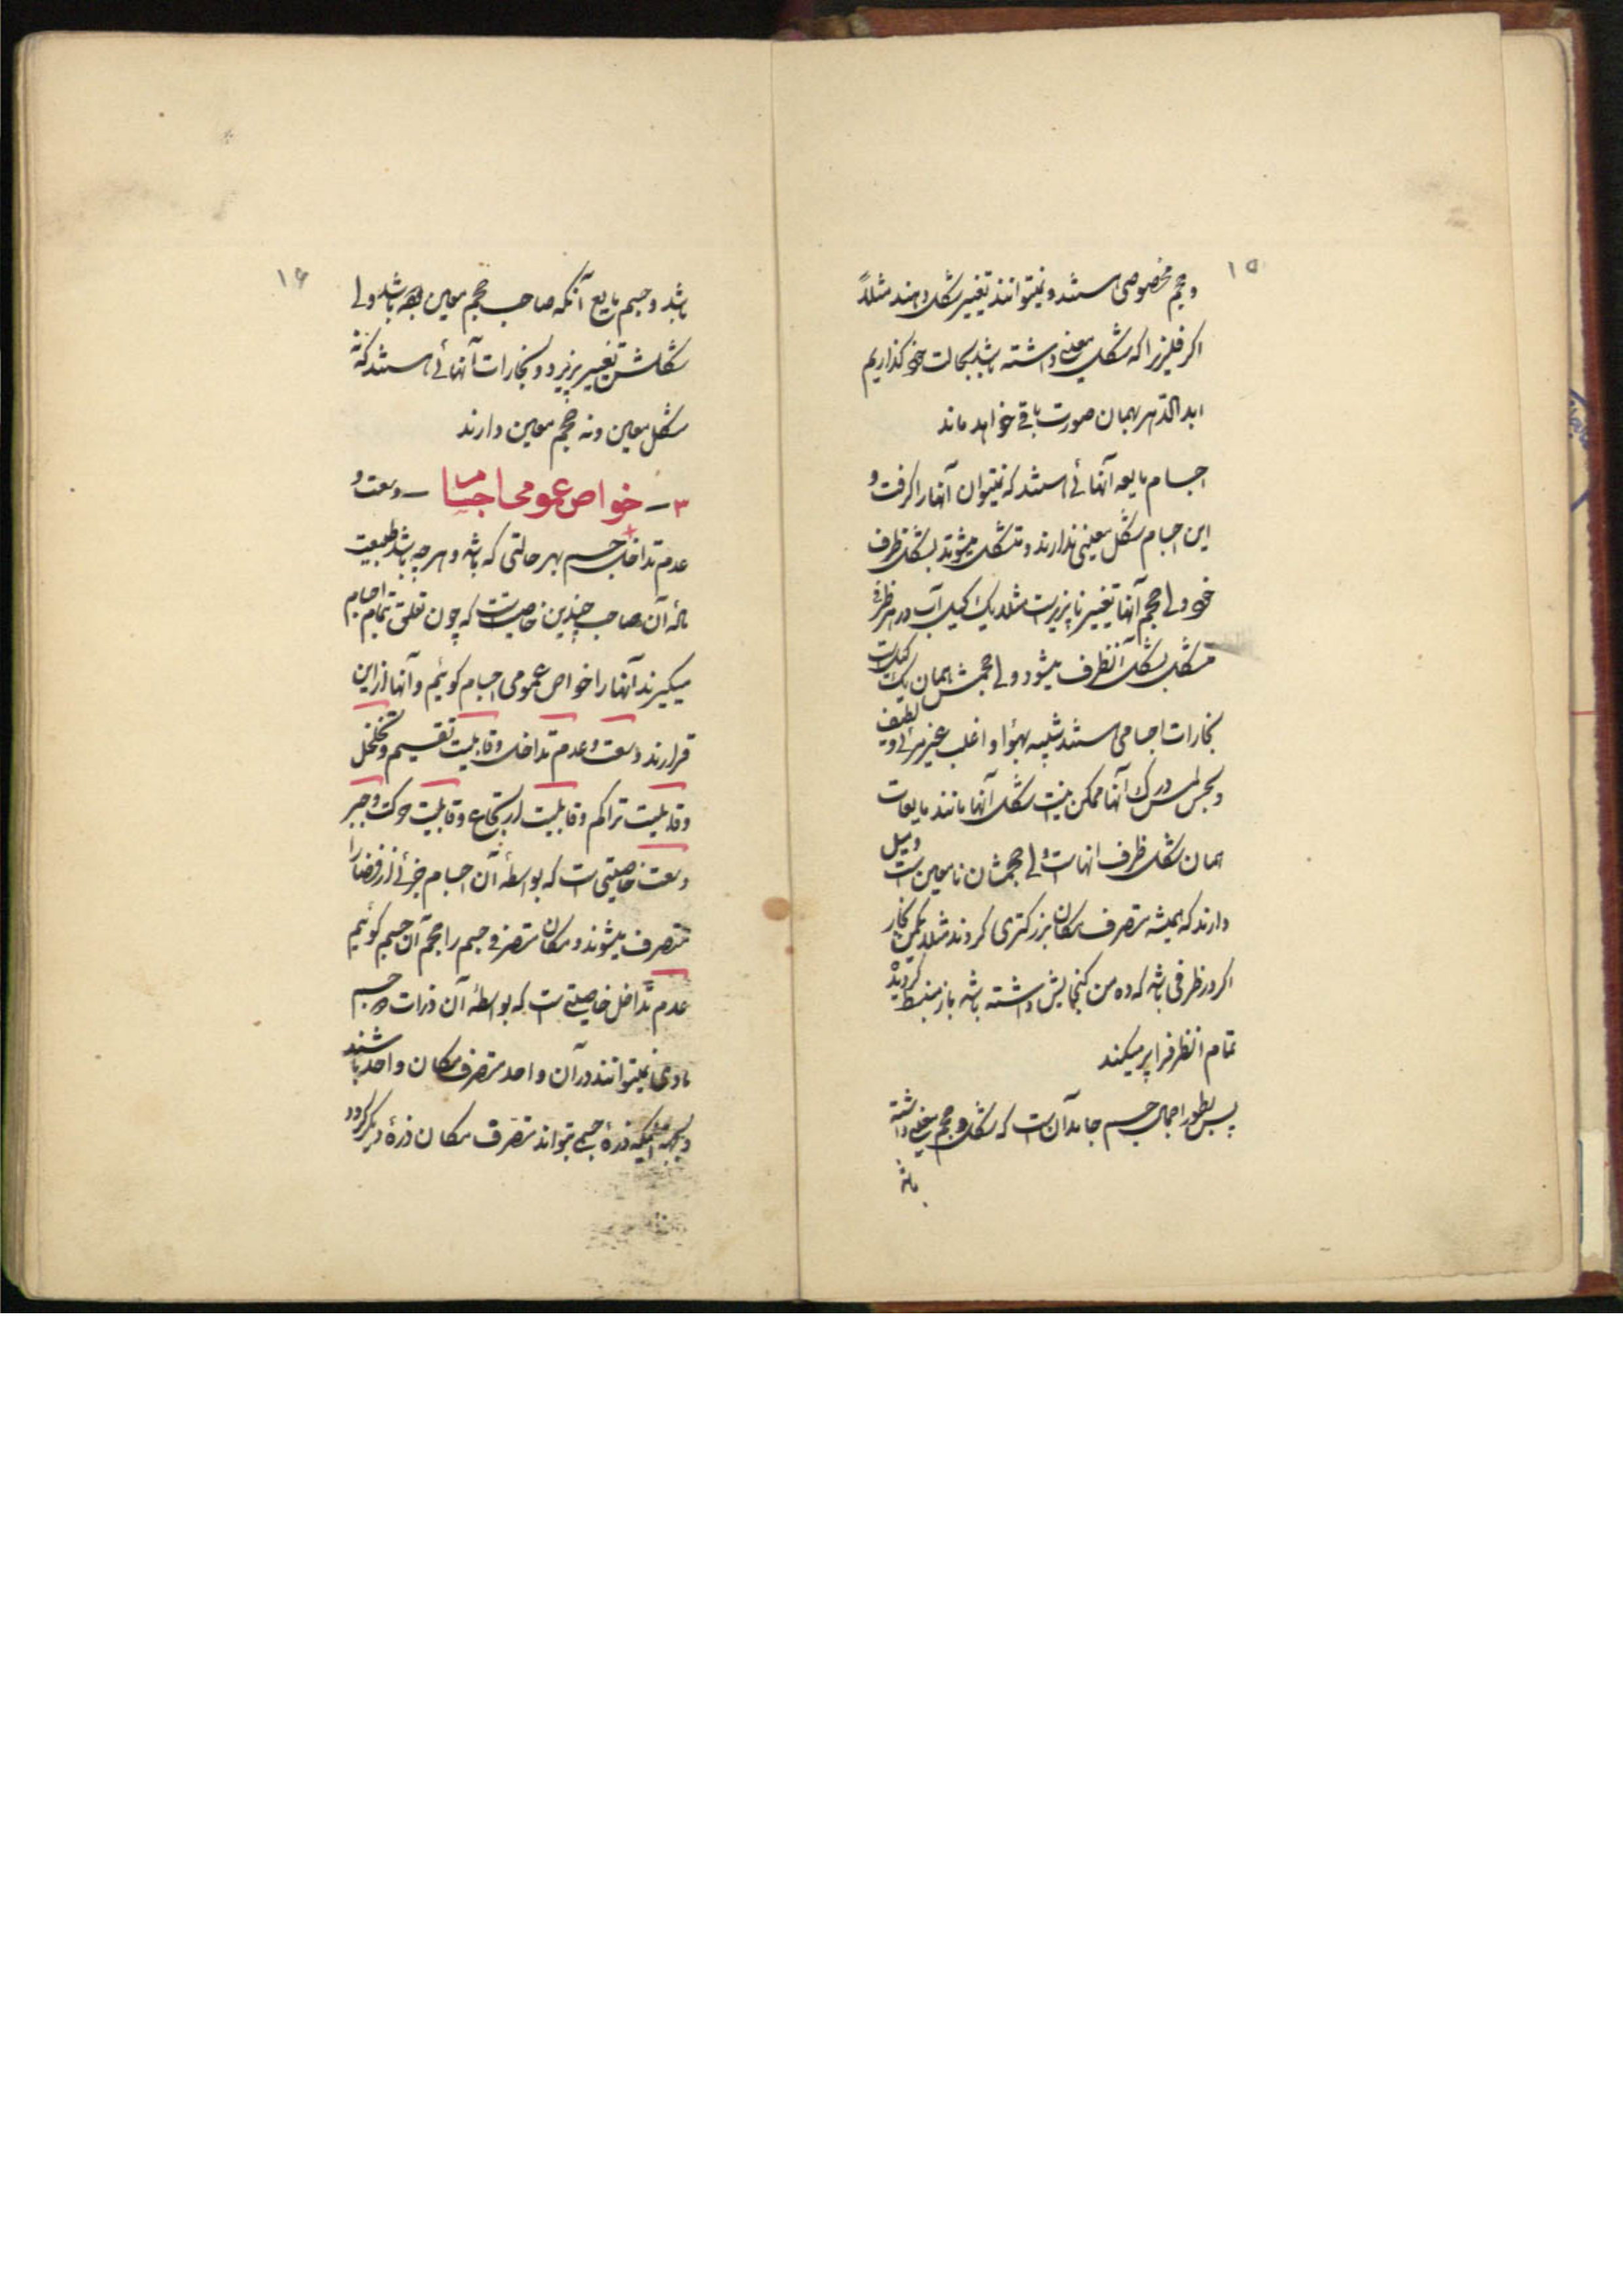 ۱۵
و حجم مخصوصی هستند و نمیتوانند تغییر شکل دهند مثلاً
اکر فلیزیرا که شکل معینی داشته باشد بحالت خود کذاریم
ابد الدّهر بهمان صورت باقی خواهد ماند
اجسام مایعه آنهائی هستند که نمیتوان آنها را کرفت و
این اجسام شکل معینی ندارند و متشکل میشوند بشکل ظرف
خود ولی حجم آنها تغییر ناپذیر است مثلاً یک کیل آب در هر ظرفی
متشکل بشکل آنظرف میشود ولی حجمش همان یک کیل است
بخارات اجسامی هستند شبیه بهوا و اغلب غیر مرئی و لطیف
و بحس لمس درک آنها ممکن نیست شکل آنها مانند مایعات
همان شکل ظرف انهاست ولی حجمشان نامعین است و میل
دارند که همیشه متصرف مکان بزرکتری کردند مثلاً یکمن بخار
اکر در ظرفی باشد که ده من کنجایش داشته باشد باز منبسط کردیده
تمام انظرفرا پر میکند
پس بطور اجمال جسم جامد آن است که شکل و حجم معینی داشته
باشد
۱۶
باشد و جسم مایع آنکه صاحب حجم معین بوده باشد ولی
شکلش تغییر پذیرد و بخارات آنهائی هستند که نه
شکل معین و نه حجم معین دارند
۳ — خواص عمومی اجسام — وسعت و
عدم تداخل جسم بهر حالتی که باشد و هر چه باشد طبیعت
مادّه آن صاحب چندین خاصیت است که چون تعلق بتمام اجسام
میکیرند آنها را خواص عمومی اجسام کوئیم و آنها از این
قرارند وسعت و عدم تداخل و قابلیت تقسیم و تخلخل
و قابلیت تراکم و قابلیت ارتجاع و قابلیت حرکت و جبر
وسعت خاصیتی است که بواسطهٔ آن اجسام جزئی از فضا را
متصرف میشوند و مکان متصرفی جسم را حجم آن جسم کوئیم
عدم تداخل خاصیتی است که بواسطهٔ آن ذرات دو جسم
مادی نمیتوانند در آن واحد متصرف مکان واحد باشند
و بجهة اینکه ذرهٔ جسمی بتواند متصرف مکان ذرهٔ دیکر کردد